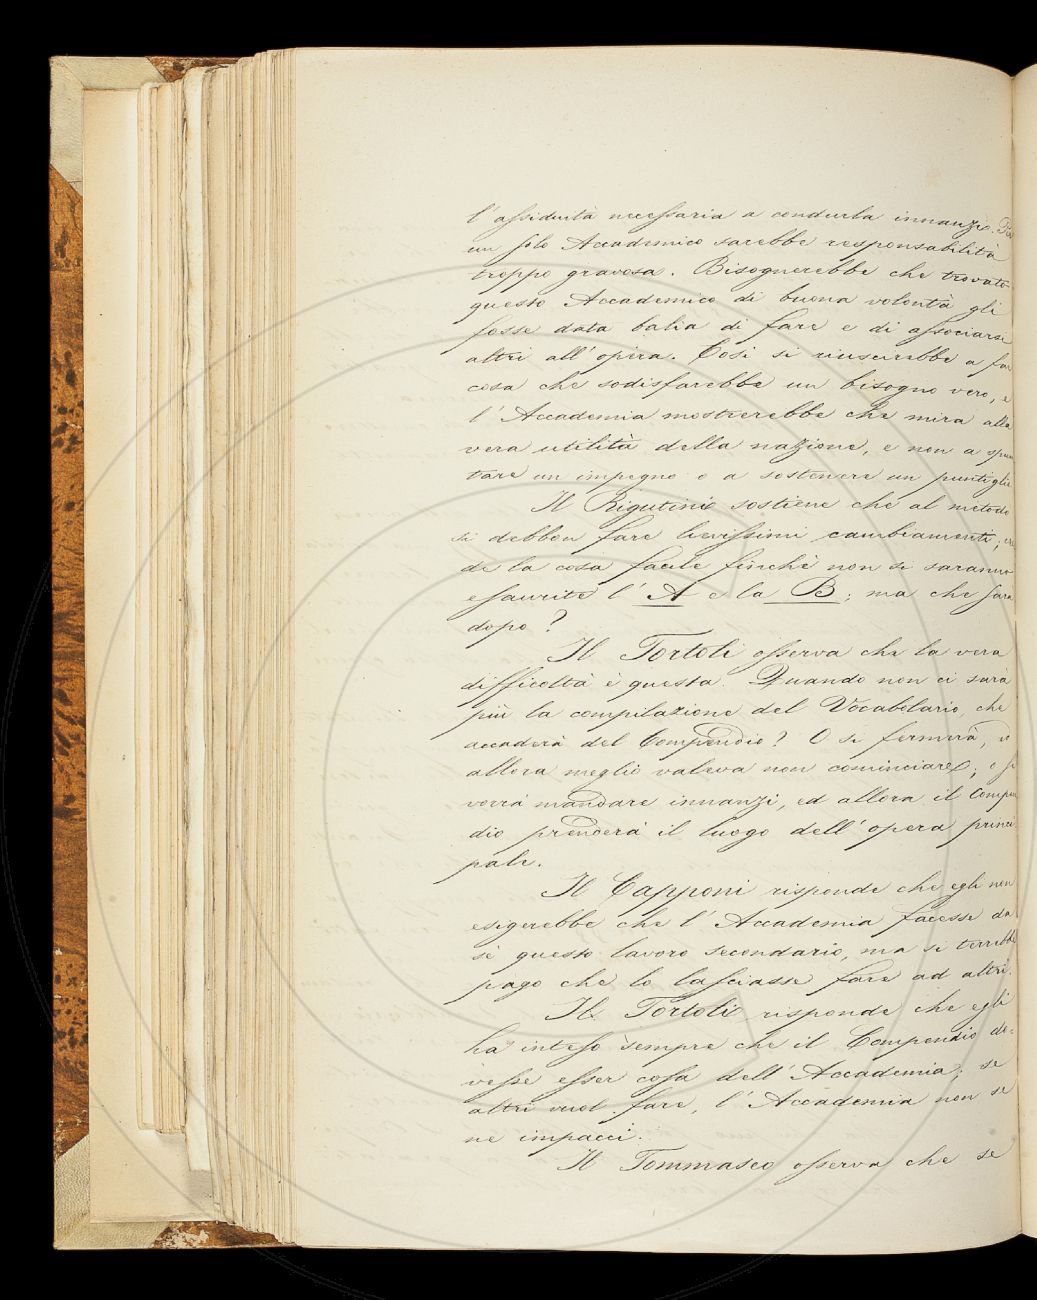 l'assiduità necessaria a condurla innanzi. Per
un solo Accademico sarebbe responsabilità
troppo gravosa. Bisognerebbe che trovato
questo Accademico di buona volontà gli
fosse data balia di fare e di associarsi
altri all'opera. Così si riuscirebbe a far
cosa che sodisfarebbe un bisogno vero, e
l'Accademia mostrerebbe che mira alla
vera utilità della nazione, e non a spun
tare un impegno o a sostenere un puntiglio
Il Rigutini sostiene che al metodo
si debbon fare lievissimi cambiamenti; cre
de la cosa facile finchè non si saranno
esaurite l'A e la B; ma che sarà
dopo?
Il Tortoli osserva che la vera
difficoltà è questa. Quando non ci sarà
più la compilazione del Vocabolario, che
accaderà del Compendio? O si fermerà, e
allora meglio valeva non cominciare; o si
vorrà mandare innanzi, ed allora il Compen
dio prenderà il luogo dell'opera princi
pale.
Il Capponi risponde che egli non
esigerebbe che l'Accademia facesse da
sè questo lavoro secondario, ma si terrebbe
pago che lo lasciasse fare ad altri.
Il Tortoli risponde che egli
ha inteso sempre che il Compendio do=
vesse esser cosa dell'Accademia; se
altri vuol fare, l'Accademia non se
ne impacci.
Il Tommaseo osserva che se